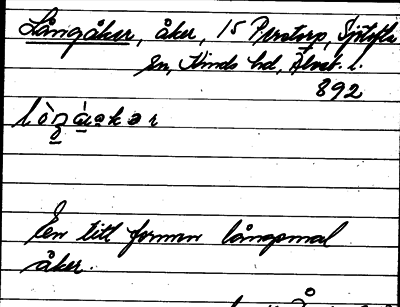 Långåker, åker, 15 Perstorp, Sjötofta
sn, Kinds hd, Älvsb. l.
892
En till formen långsmal
åker.